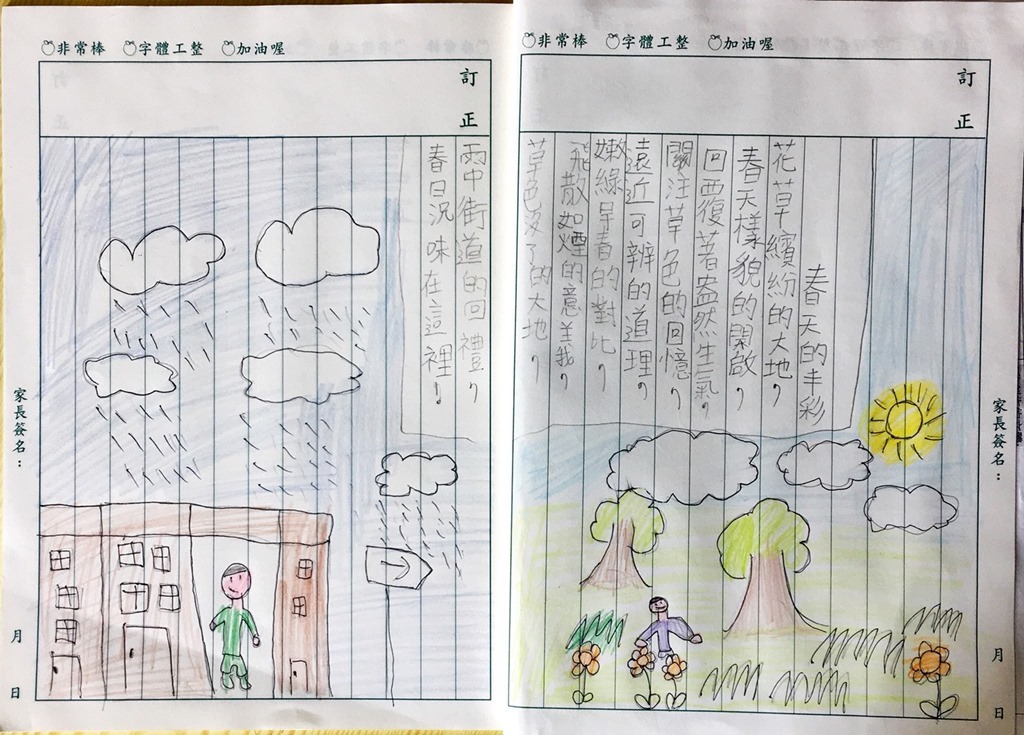 非常棒 字體工整 加油喔
訂正
春天的丰彩
花草繽紛的大地，
春天樣貌的開啟，
回覆著盎然生氣，
關注草色的回憶，
遠近可辨的道理，
嫩綠早春的對比，
飛散如煙的意義，
草色沒了的大地，
家長簽名：
月
日
非常棒 字體工整 加油喔
訂正
雨中街道的回禮，
春日況味在這裡！
家長簽名：
月
日